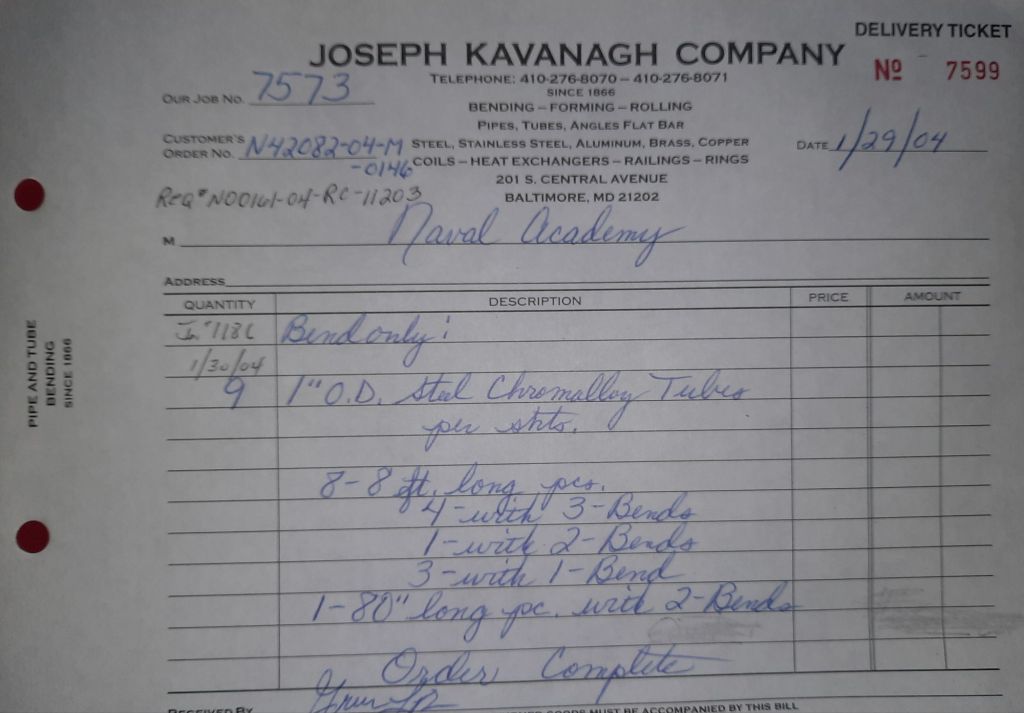 DELIVERY TICKET
JOSEPH KAVANAGH COMPANY
Nº 7599
TELEPHONE: 410-276-8070 – 410-276-8071
SINCE 1866
OUR JOB NO. 7573
BENDING – FORMING – ROLLING
PIPES, TUBES, ANGLES FLAT BAR
CUSTOMER'S ORDER NO. N42082-04-M-0146
STEEL, STAINLESS STEEL, ALUMINUM, BRASS, COPPER
DATE 1/29/04
COILS – HEAT EXCHANGERS – RAILINGS – RINGS
201 S. CENTRAL AVENUE
BALTIMORE, MD 21202
REQ# N00161-04-RC-11203
M Naval Academy
ADDRESS
QUANTITY DESCRIPTION PRICE AMOUNT
Bend only:
1/30/04
9 1" O.D. Steel Chromalloy Tubes
per skts.
8-8 ft. long pcs.
4-with 3-Bends
1-with 2-Bends
3-with 1-Bend
1-80" long pc. with 2-Bends
Order Complete
RECEIVED BY
GOODS MUST BE ACCOMPANIED BY THIS BILL
PIPE AND TUBE
BENDING
SINCE 1866